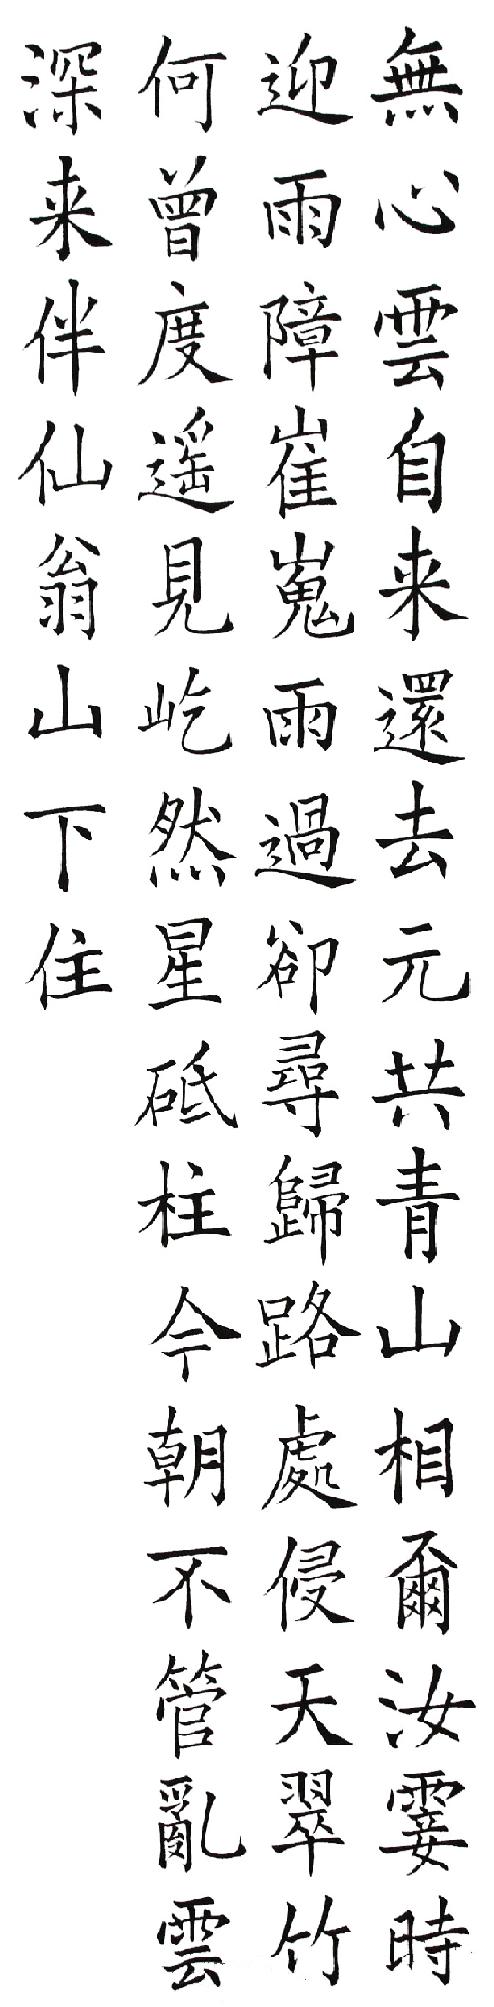 無心雲自来還去元共青山相爾汝霎時
迎雨障崔嵬雨過卻尋歸路處侵天翠竹
何曾度遥見屹然星砥柱今朝不管亂雲
深来伴仙翁山下住